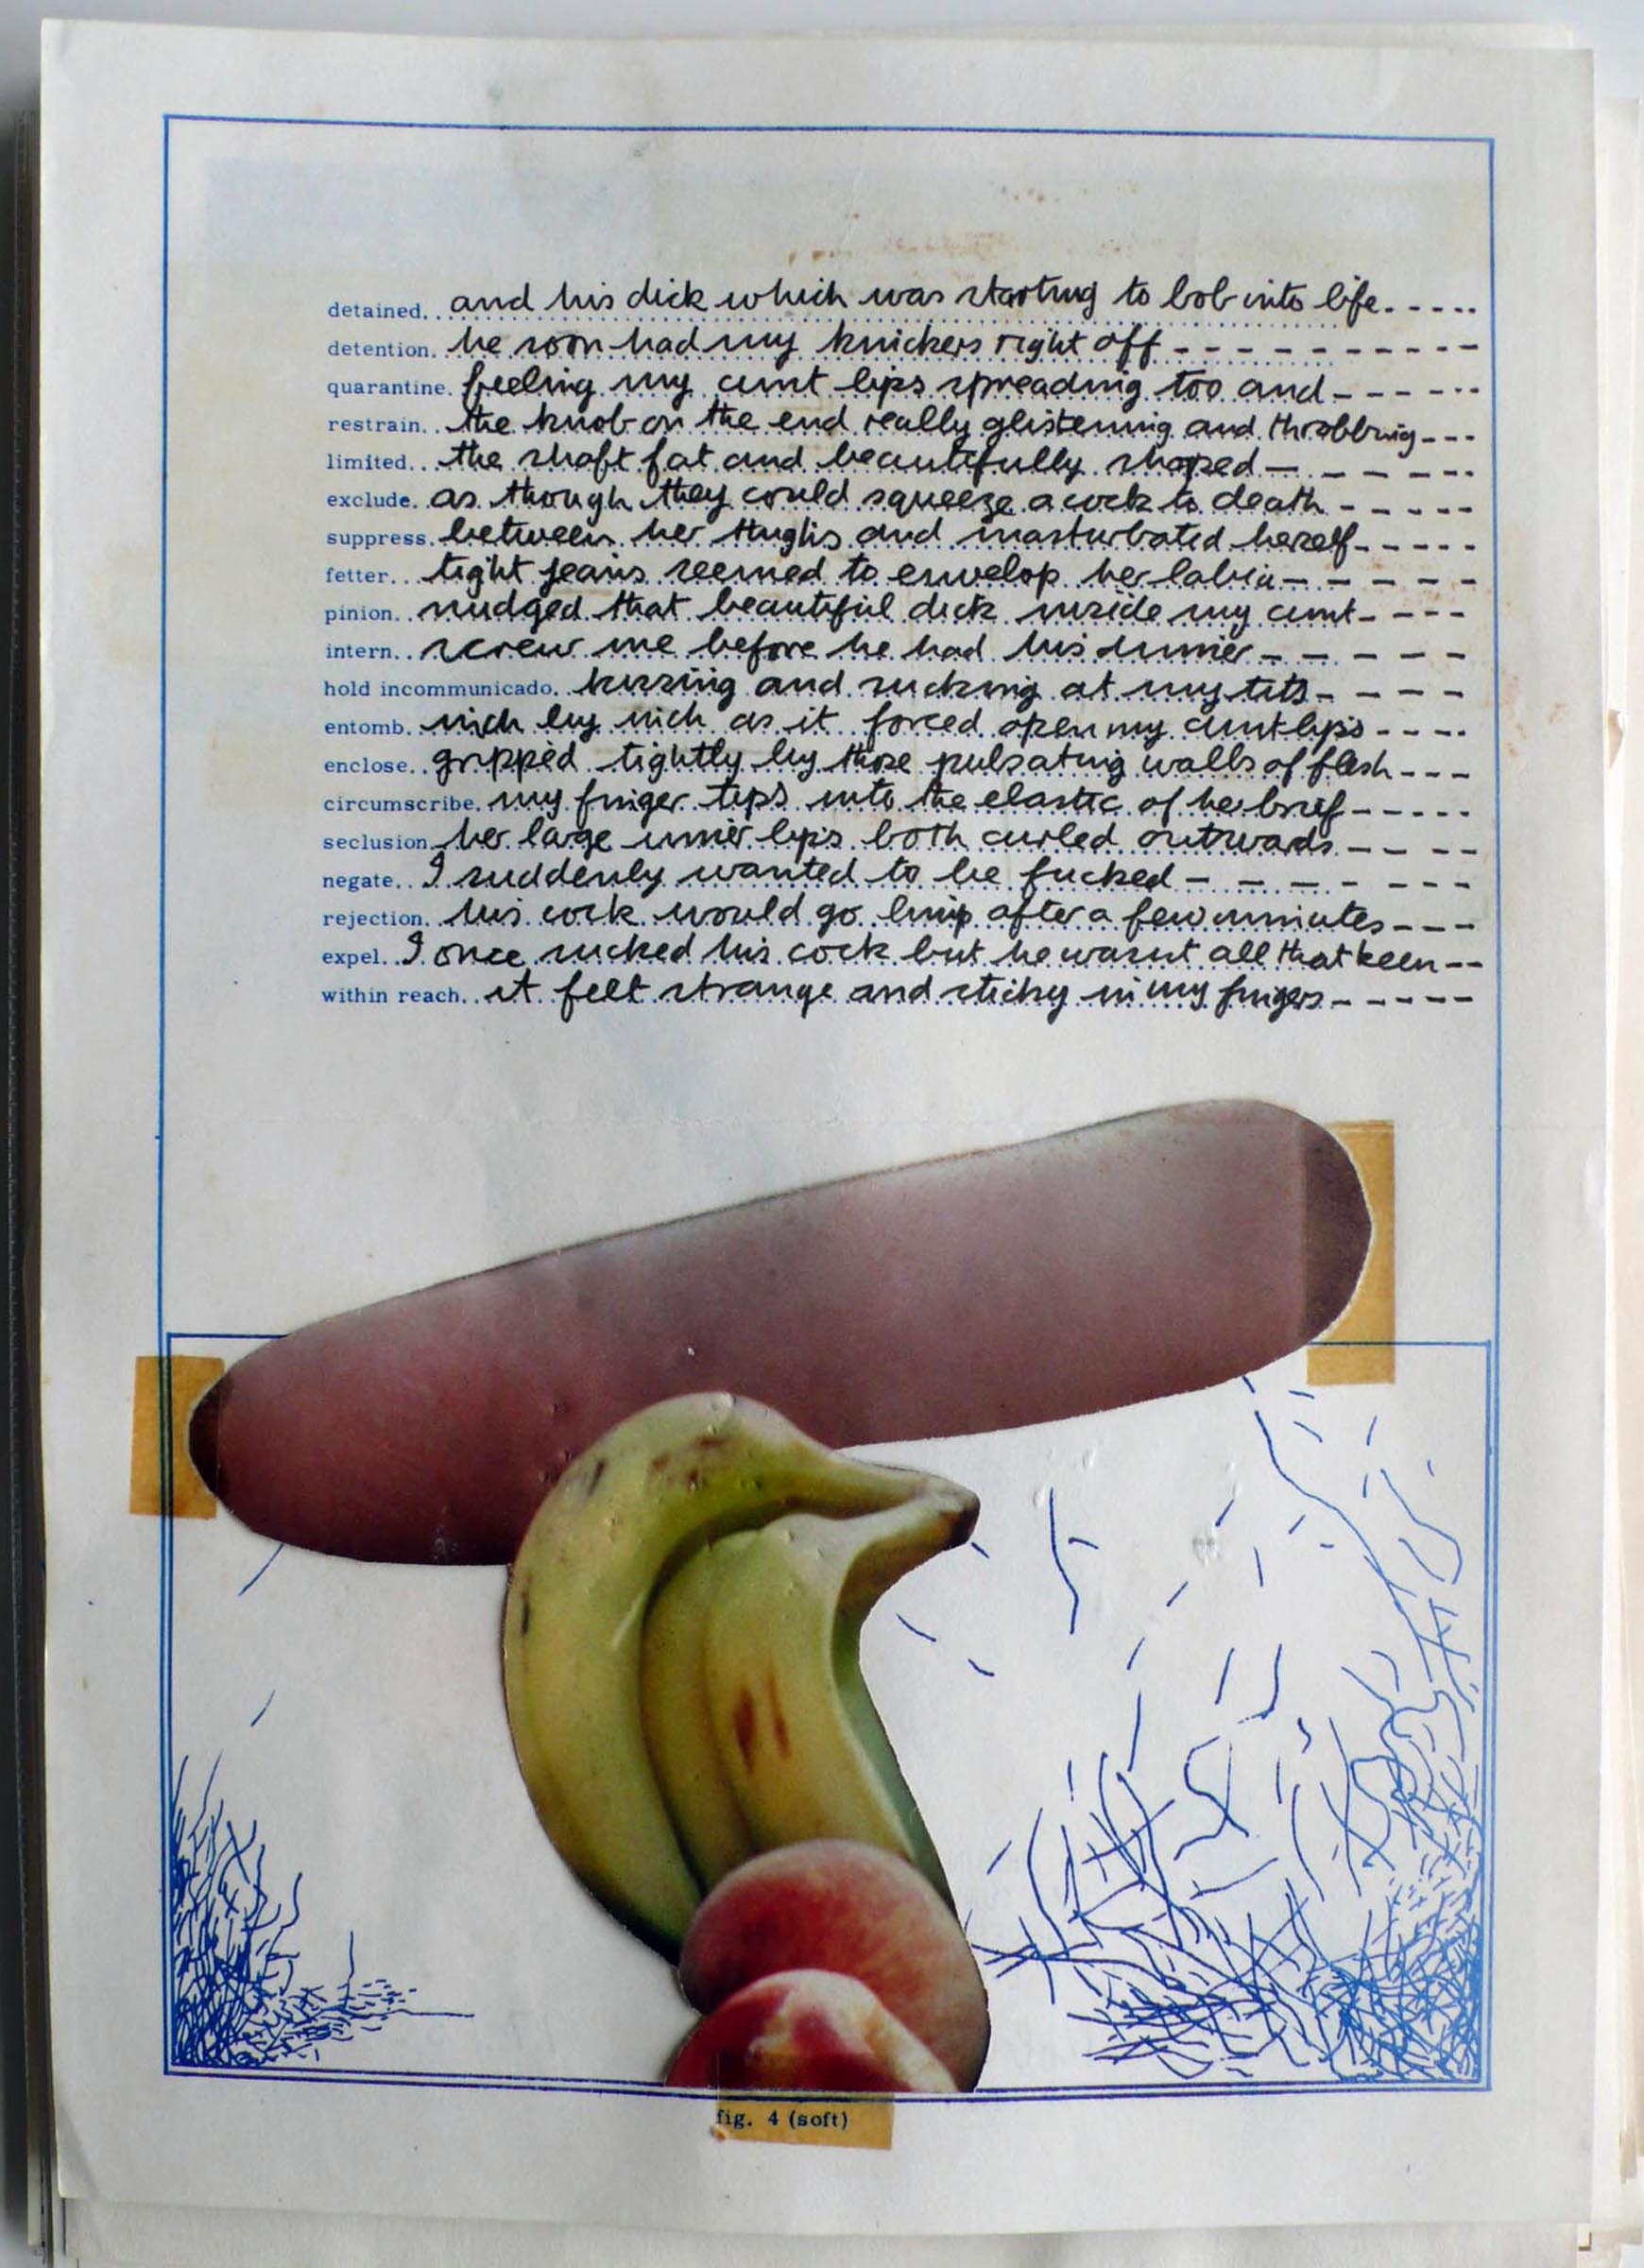 detained. . and his dick which was starting to bob into life. - - - -
detention. he soon had my knickers right off - - - - - - - - - -
quarantine. feeling my cunt lips spreading too and - - - - - -
restrain. . the knob on the end really glistening and throbbing - - -
limited. . the shaft fat and beautifully shaped - - - - - -
exclude. as though they could squeeze a cock to death - - - - -
suppress. between her thighs and masturbated herself - - - - -
fetter. . . tight jeans seemed to envelop her labia - - - - - -
pinion. . nudged that beautiful dick inside my cunt - - - -
intern. . screw me before he had his dinner - - - - - -
hold incommunicado. . kissing and sucking at my tits - - - - -
entomb. inch by inch as it forced open my cunt lips - - - -
enclose. . gripped tightly by those pulsating walls of flesh - - -
circumscribe. my finger tips into the elastic of her brief - - - - -
seclusion. her large inner lips both curled outwards - - - -
negate. . I suddenly wanted to be fucked - - - - - - - -
rejection. his cock would go limp after a few minutes - - -
expel. . I once sucked his cock but he wasnt all that keen - -
within reach. . it felt strange and sticky in my fingers - - - - -
fig. 4 (soft)